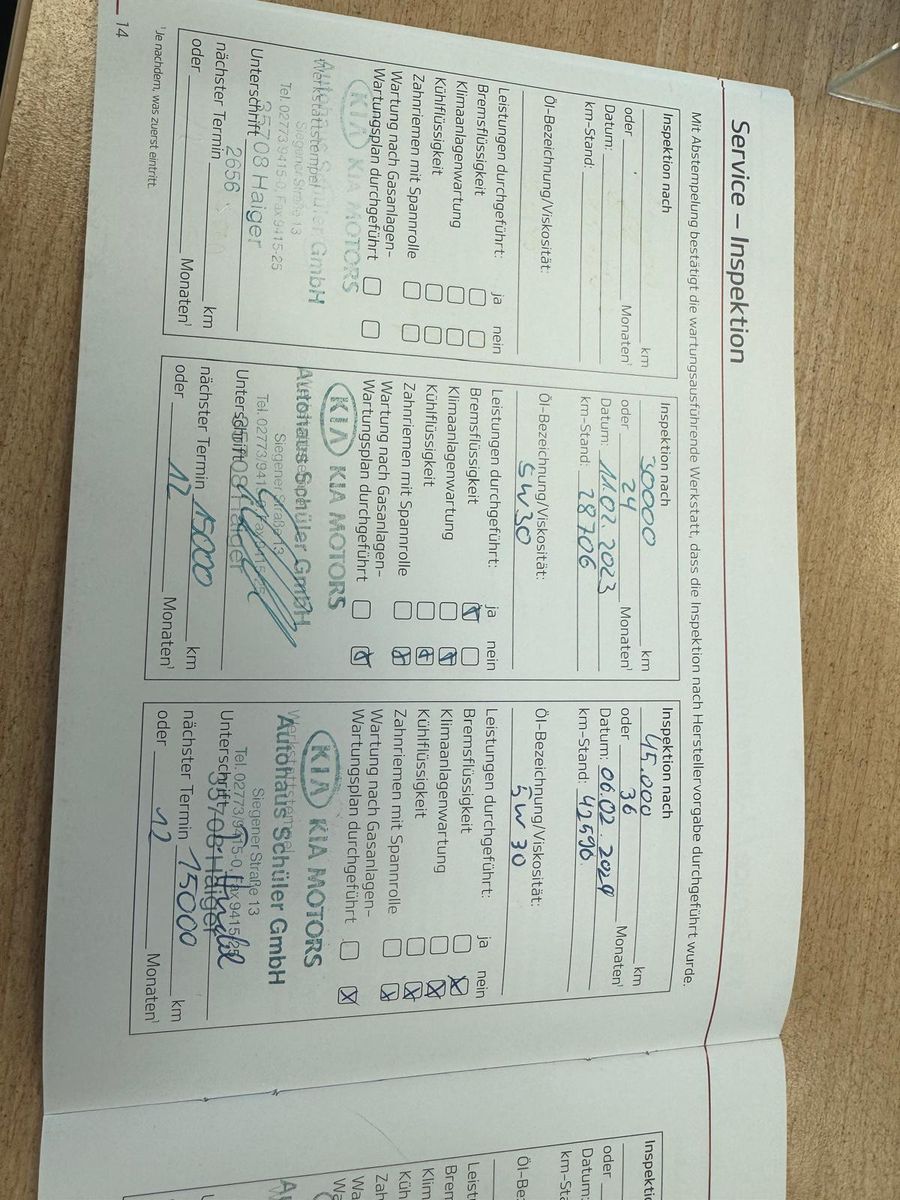 Service – Inspektion
Mit Abstempelung bestätigt die wartungsausführende Werkstatt, dass die Inspektion nach Herstellervorgabe durchgeführt wurde.
Inspektion nach
km
oder Monaten¹
Datum:
km-Stand:
Öl-Bezeichnung/Viskosität:
Leistungen durchgeführt: ja nein
Bremsflüssigkeit
Klimaanlagenwartung
Kühlflüssigkeit
Zahnriemen mit Spannrolle
Wartung nach Gasanlagen-
Wartungsplan durchgeführt
KIA KIA MOTORS
Werkstattstempel
Autohaus Schüler GmbH
Siegener Straße 13
Tel. 02773/9415-0, Fax 9415-25
35708 Haiger
Unterschrift
2656
nächster Termin km
oder Monaten¹
Inspektion nach
30000 km
oder 24 Monaten¹
Datum: 11.02.2023
km-Stand: 28706
Öl-Bezeichnung/Viskosität:
5W30
Leistungen durchgeführt: ja nein
Bremsflüssigkeit
Klimaanlagenwartung
Kühlflüssigkeit
Zahnriemen mit Spannrolle
Wartung nach Gasanlagen-
Wartungsplan durchgeführt
KIA KIA MOTORS
Autohaus Schüler GmbH
Siegener Straße 13
Tel. 02773/9415
35708 Haiger
Unterschrift
nächster Termin 15000 km
oder 12 Monaten¹
Inspektion nach
45.000 km
oder 36 Monaten¹
Datum: 06.02.2024
km-Stand: 42596
Öl-Bezeichnung/Viskosität:
5W30
Leistungen durchgeführt: ja nein
Bremsflüssigkeit
Klimaanlagenwartung
Kühlflüssigkeit
Zahnriemen mit Spannrolle
Wartung nach Gasanlagen-
Wartungsplan durchgeführt
KIA KIA MOTORS
Werkstattstempel
Autohaus Schüler GmbH
Siegener Straße 13
Tel. 02773/9415-0, Fax 9415-25
35708 Haiger
Unterschrift
nächster Termin 15000 km
oder 12 Monaten¹
¹Je nachdem, was zuerst eintritt.
14
Inspektio
oder
Datum:
km-Sta
Öl-Be
Leist
Brem
Klim
Küh
Zah
Wa
Wa